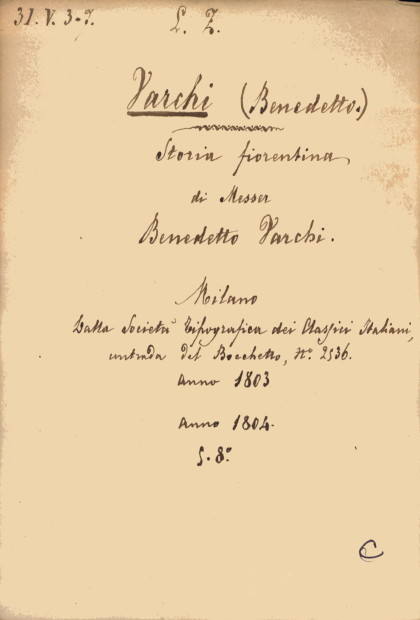 31. V. 3-7. L. Z.
Varchi (Benedetto.)
Storia fiorentina
di Messer
Benedetto Varchi.
Milano
Dalla Società Tipografica dei Classici Italiani,
contrada del Bocchetto, Nº. 2536.
Anno 1803
Anno 1804.
5. 8º
C